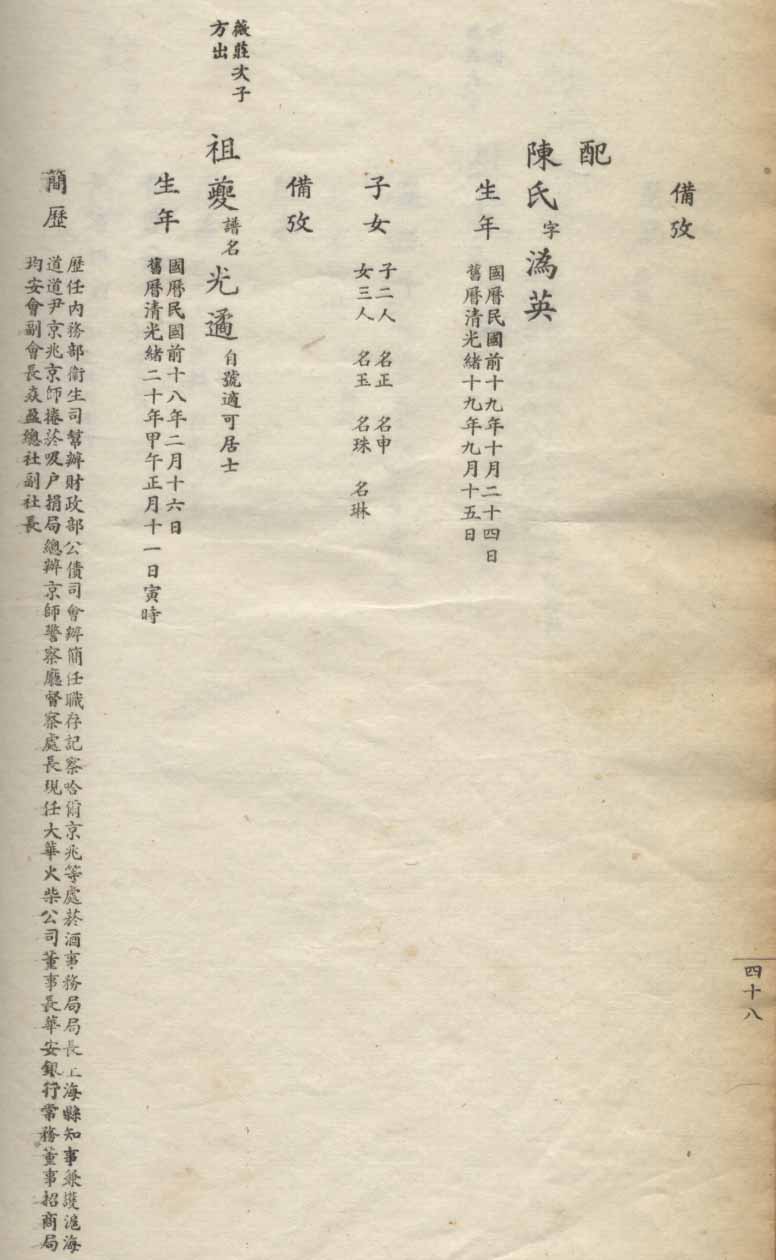 四十八
備攷
配
陳氏字溈英
生年
國曆民國前十九年十月二十四日
舊曆清光緒十九年九月十五日
子女
子二人 名正 名申
女三人 名玉 名珠 名琳
備攷
薇莊次子
方出
祖夔譜名光遹自號適可居士
生年
國曆民國前十八年二月十六日
舊曆清光緒二十年甲午正月十一日寅時
簡歷
歷任內務部衛生司幫辦財政部公債司會辦簡任職存記察哈爾京兆等處菸酒事務局局長上海縣知事兼護滬海
道道尹京兆京師捲菸吸户捐局總辦京師警察廳督察處長現任大華火柴公司董事長華安銀行常務董事招商局
均安會副會長焱盈總社副社長